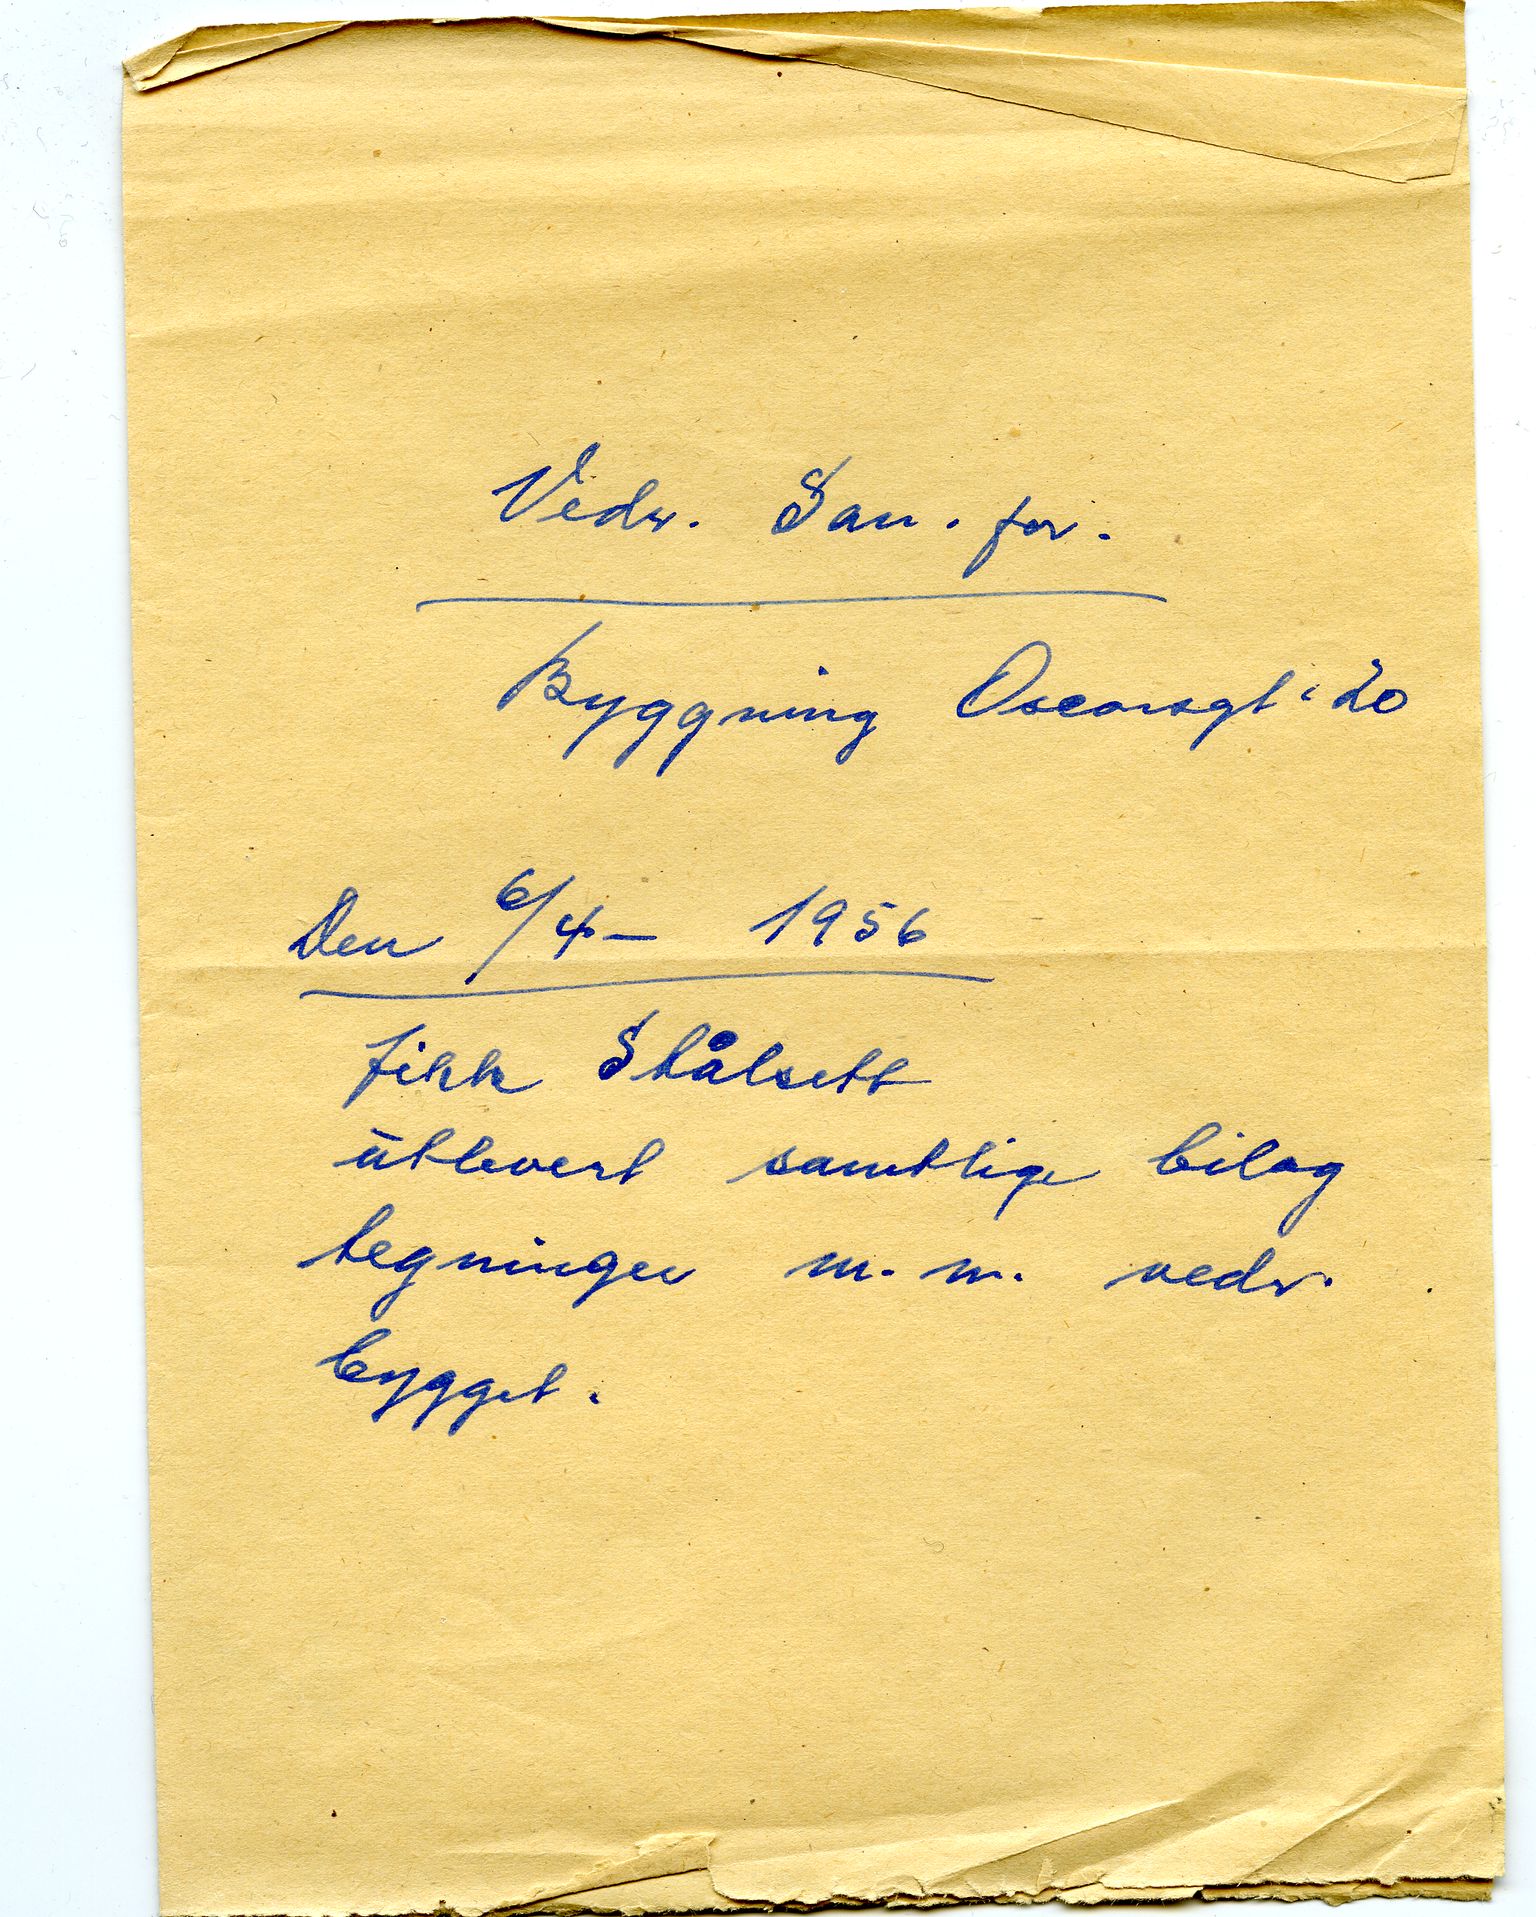 Vedr. San. for.
Byggning Oscarsgt. 20
Den 6/4 – 1956
fikk Stålsett
utlevert samtlige bilag
tegninger m. m. vedr.
bygget.